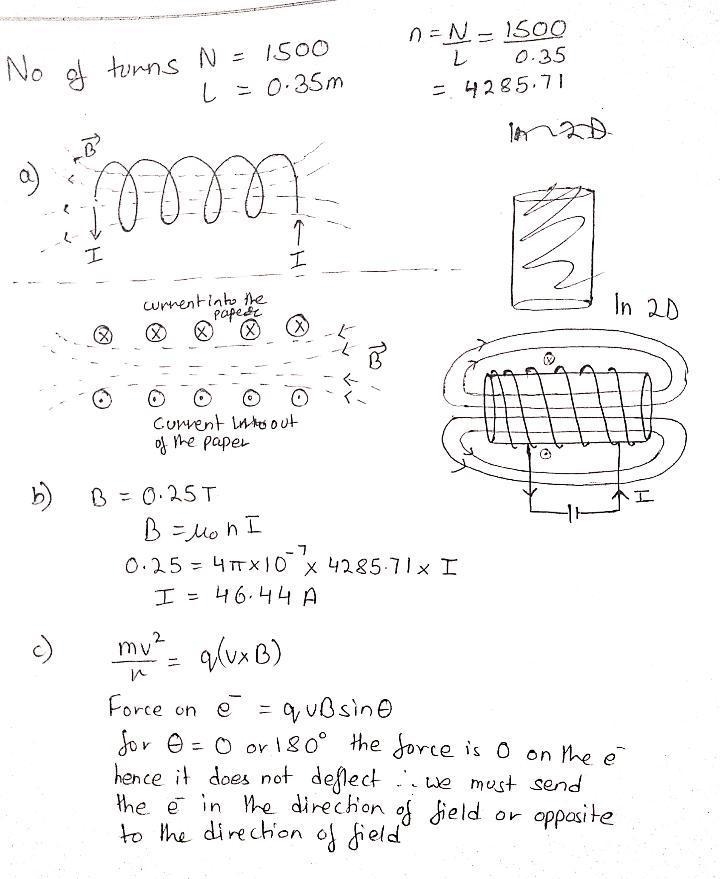 No of turns N = 1500
L = 0.35m
n = N/L = 1500/0.35
= 4285.71
In 2D
a) B⃗
I I
current into the
paper
⊗ ⊗ ⊗ ⊗ ⊗
B⃗
⊙ ⊙ ⊙ ⊙ ⊙
Current out
of the paper
In 2D
⊗
⊙
I
b) B = 0.25T
B = μ₀ n I
0.25 = 4π×10⁻⁷ × 4285.71 × I
I = 46.44 A
c) mv²/r = q(v×B)
Force on e⁻ = qvBsinθ
for θ = 0 or 180° the force is 0 on the e⁻
hence it does not deflect ∴ we must send
the e⁻ in the direction of field or opposite
to the direction of field